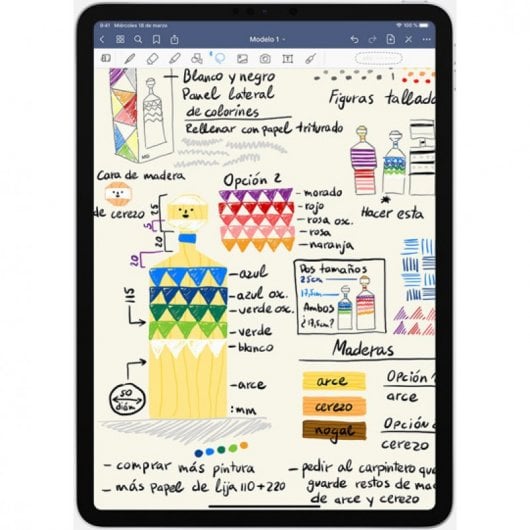 9:41 Miércoles 18 de marzo
100 %
Modelo 1
Blanco y negro
Panel lateral
de colorines
Rellenar con papel triturado
Figuras tallado
Cara de madera
de cerezo
Opción 2
morado
rojo
rosa osc.
rosa
naranja
Hacer esta
25
5
20
20
115
50
diám.
azul
azul osc.
verde osc.
verde
blanco
arce
:mm
Dos tamaños
25cm
17,5cm
Ambos
¿17,5cm?
Maderas
arce
cerezo
nogal
Opción 1
arce
Opción
cerezo
- comprar más pintura
- más papel de lija 110 + 220
- pedir al carpintero que
guarde restos de ma
de arce y cerezo